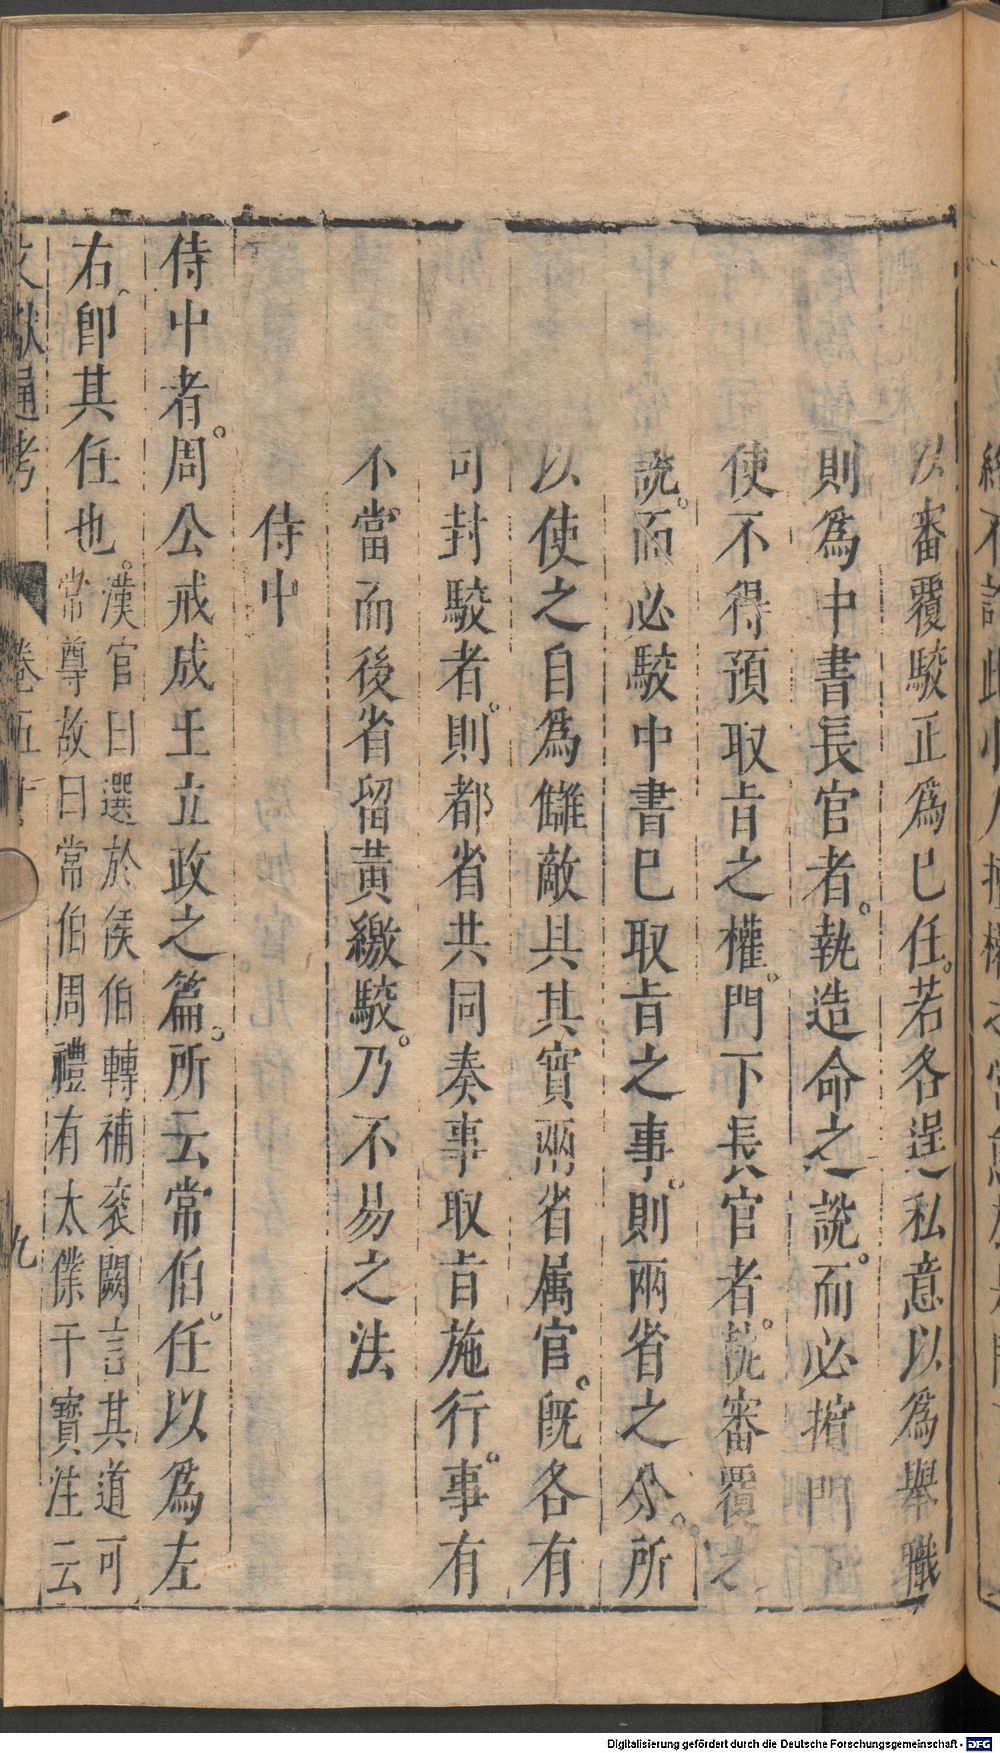 以審覆駮正為已任若各逞私意以為舉職
則為中書長官者執造命之說而必掯門
使不得預取旨之權門下長官者執審覆之
說而必駮中書已取旨之事則兩省之分所
以使之自為讎敵具其實兩省属官旣各有
可封駮者則都省共同奏事取旨施行事有
不當而後省留黃繳駮乃不易之法
侍中
侍中者周公戒成王立政之篇所云常伯任以為左
右卽其任也漢官曰選於侯伯轉補衮闕言其道可
常尊故曰常伯周禮有太僕干寶注云
文獻通考 卷五十 九
Digitalisierung gefördert durch die Deutsche Forschungsgemeinschaft - DFG